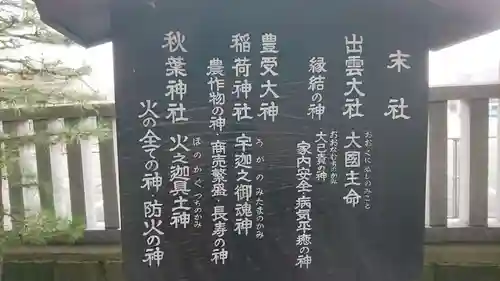 末社
出雲大社 大國主命
おおくにぬしのみこと
おおなむちのかみ
大己貴の神
縁結の神 家内安全・病気平癒の神
豊受大神
稲荷神社 宇迦之御魂神
うがのみたまのかみ
農作物の神・商売繁盛の神・長寿の神
秋葉神社 火之迦具土神
ほのかぐつちのかみ
火の全ての神 防火の神